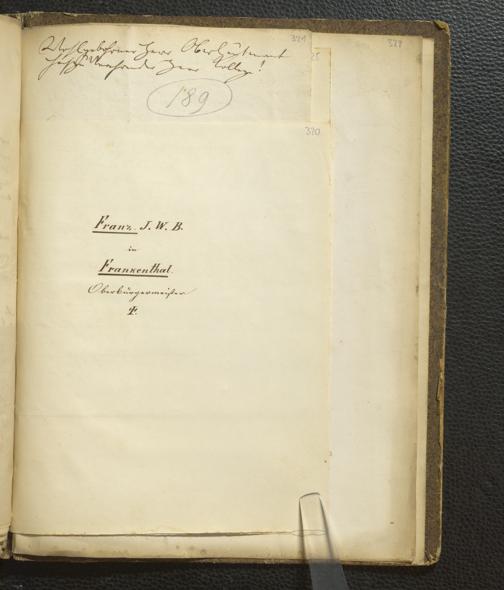 Wohlgeborner Herr Oberleutnant
Herr College!
321
322
189
320
Franz. J. W. B.
in
Frankenthal.
Oberbürgermeister